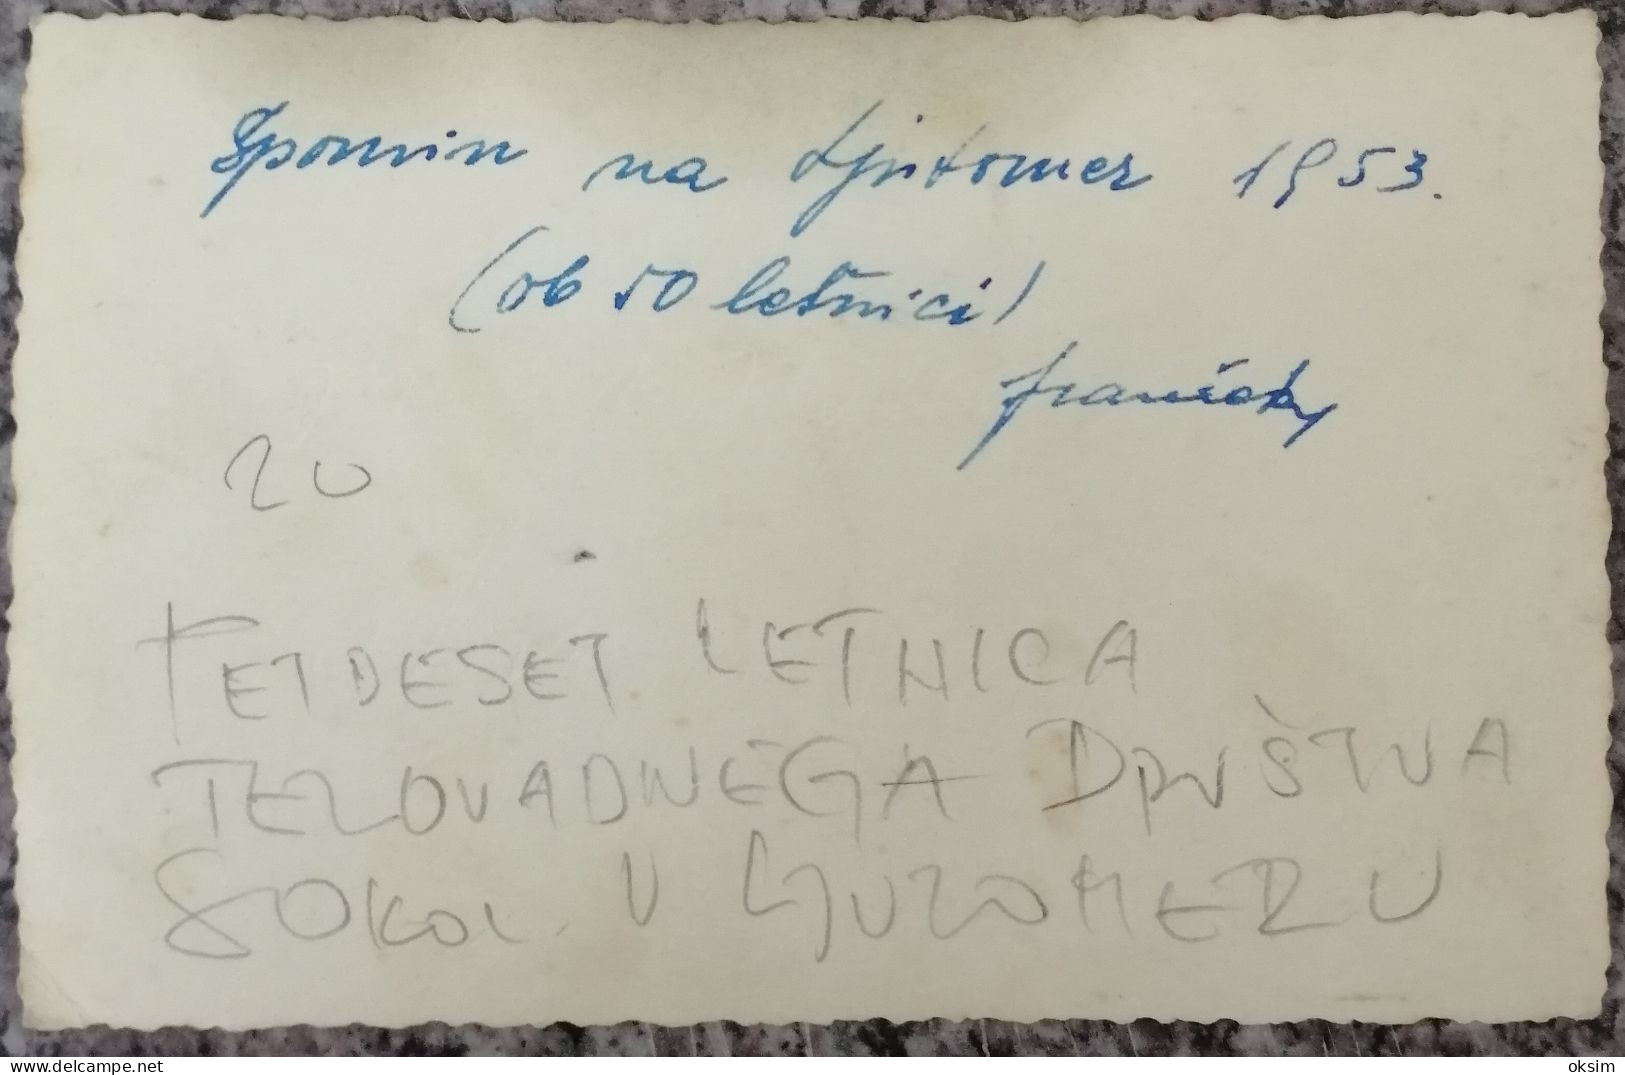 Spomin na Ljutomer 1953.
(ob 50 letnici)
20
PETDESET LETNICA
TELOVADNEGA DRUŠTVA
SOKOL V LJUTOMERU
delcampe.net
oksim